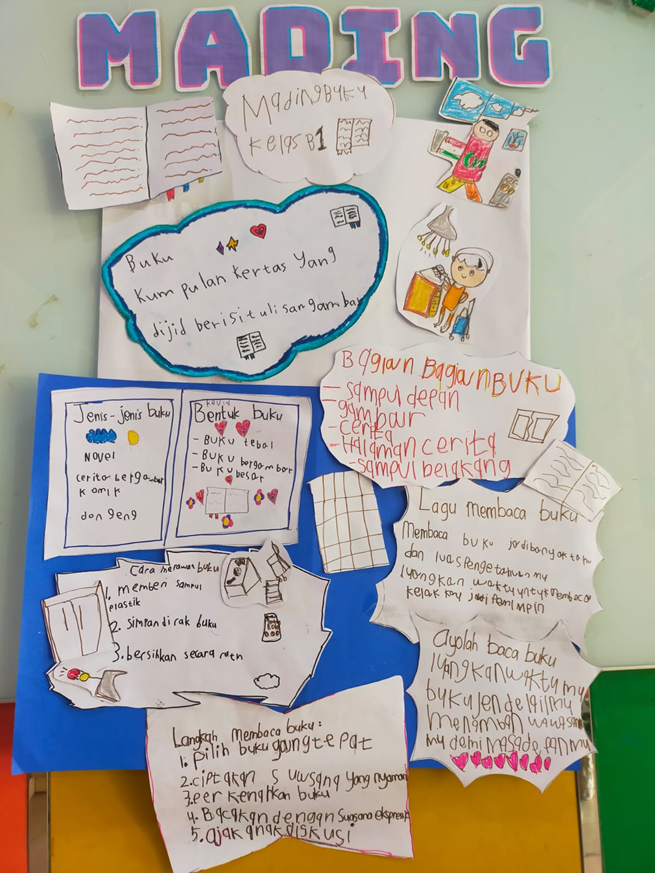 MADING
Mading BUKU
Kelas B1
Buku
Kumpulan kertas Yang
dijid berisi tulisan gambar
Bagian Bagian BUKU
- sampul depan
- gambar
- cerita
- Halaman cerita
- sampul belakang
Jenis-jenis buku
Novel
cerita bergambar
komik
dongeng
Bentuk buku
- BUKU tebal
- BUKU bergambar
- BUKU besar
Lagu membaca buku
Membaca buku jadi banyak tahu
dan luas Pengetahuanmu
luangkan waktu untuk membaca
kelak kmu jadi Pemimpin
Cara merawat buku
1. memberi sampul
plastik
2. simpan di rak buku
3. bersihkan secara rutin
ayolah baca buku
luangkan waktumu
buku jendela ilmu
menambah wawasan
mu demi masa depanmu
Langkah membaca buku:
1. pilih buku yang tepat
2. ciptakan suasana yang nyaman
3. perkenalkan buku
4. Bacakan dengan suasana ekspresif
5. ajak anak diskusi